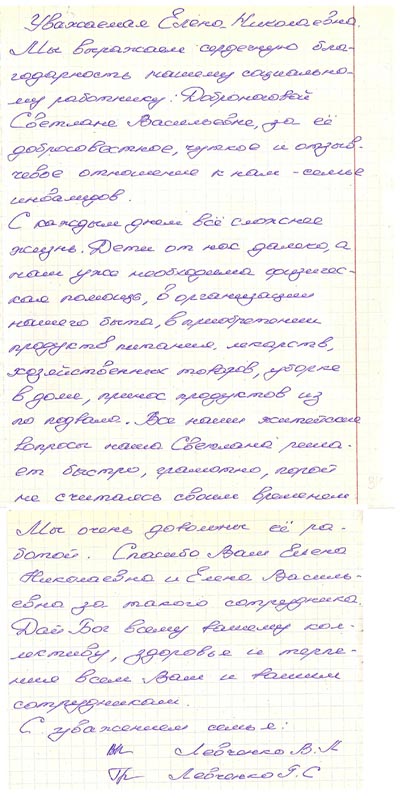 Уважаемая Елена Николаевна.
Мы выражаем сердечную бла-
годарность нашему социально-
му работнику: Доброносовой
Светлане Васильевне, за её
добросовестное, чуткое и отзыв-
чевое отношение к нам - семье
инвалидов.
С каждым днем всё сложнее
жизнь. Дети от нас далеко, а
нам уже необходима физичес-
кая помощь, в организации
нашего быта, в приобретении
продуктв питания, лекарств,
хозяйственных товаров, уборке
в доме, принос продуктов из
по подвала. Все наши житейские
вопросы наша Светлана реша-
ет быстро, грамотно, порой
не считаясь своим временем
Мы очень довольны её ра-
ботой. Спасибо Вам Елена
Николаевна и Елена Василь-
евна за такого сотрудника.
Дай Бог всему вашему кол-
лективу, здоровье и терпе-
ния всем Вам и вашим
сотрудникам.
С уважением семья:
Левченко В.Л
Левченко Г.С